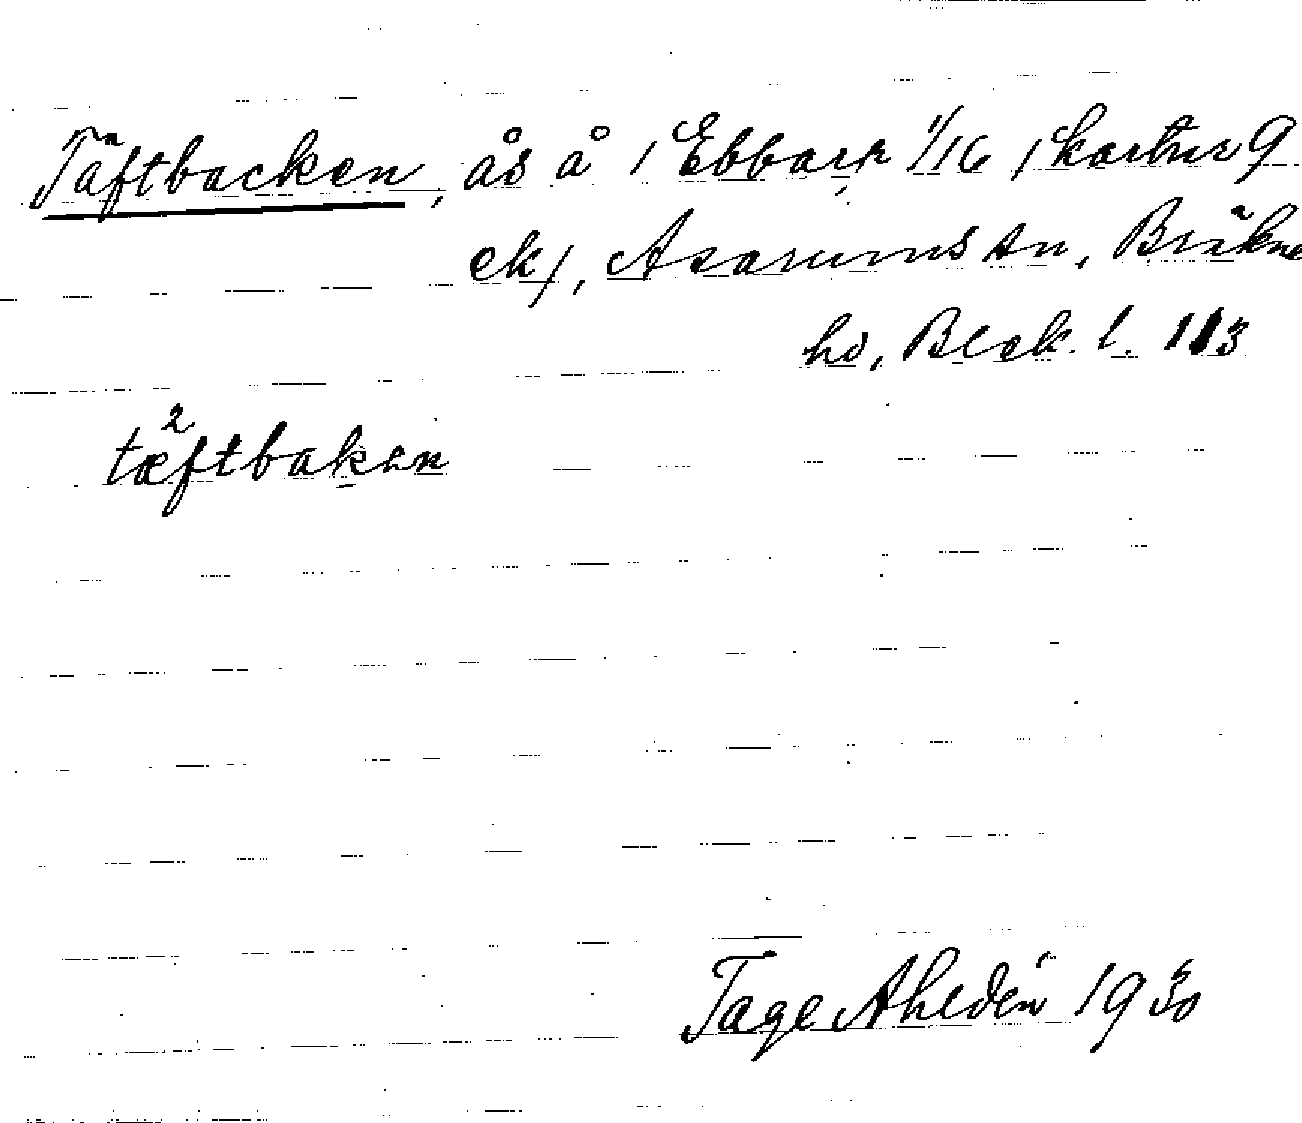 Täftbacken, ås å 1 Ebbark 1/16 (kartnr 9
ek), Asarums sn, Bräkne
hd, Blek. l. 113
tæ²ftbakan
Tage Ahldén 1930